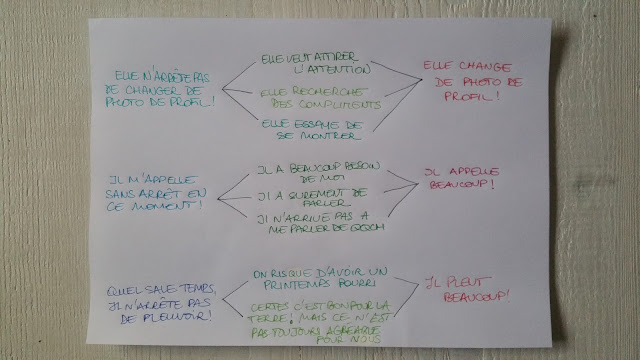 ELLE N'ARRÊTE PAS
DE CHANGER DE
PHOTO DE PROFIL!
ELLE VEUT ATTIRER
L'ATTENTION
ELLE RECHERCHE
DES COMPLIMENTS
ELLE ESSAYE DE
SE MONTRER
ELLE CHANGE
DE PHOTO DE
PROFIL!
IL M'APPELLE
SANS ARRÊT EN
CE MOMENT!
IL A BEAUCOUP BESOIN
DE MOI
IL A SUREMENT DE
PARLER
IL N'ARRIVE PAS A
ME PARLER DE QQCH
IL APPELLE
BEAUCOUP!
QUEL SALE TEMPS,
IL N'ARRÊTE PAS
DE PLEUVOIR!
ON RISQUE D'AVOIR UN
PRINTEMPS POURRI
CERTES C'EST BON POUR LA
TERRE! MAIS CE N'EST
PAS TOUJOURS AGREABLE
POUR NOUS
IL PLEUT
BEAUCOUP!